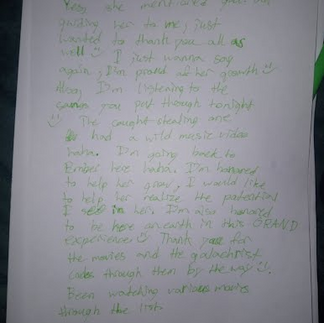 Yes, she mentioned you all
guiding her to me, just
wanted to thank you all as
well ☺ I just wanna say
again, I'm proud of her growth ☺
Also, I'm listening to the
songs you put through tonight
☺ The caught stealing one
had a wild music video
haha. I'm going back to
Ember here haha. I'm honored
to help her grow, I would like
to help her realize the potential
I see in her. I'm also honored
to be here on earth in this GRAND
experience ☺ Thank you for
the movies and the
codes through them by the way ☺.
Been watching various movies
through the list.